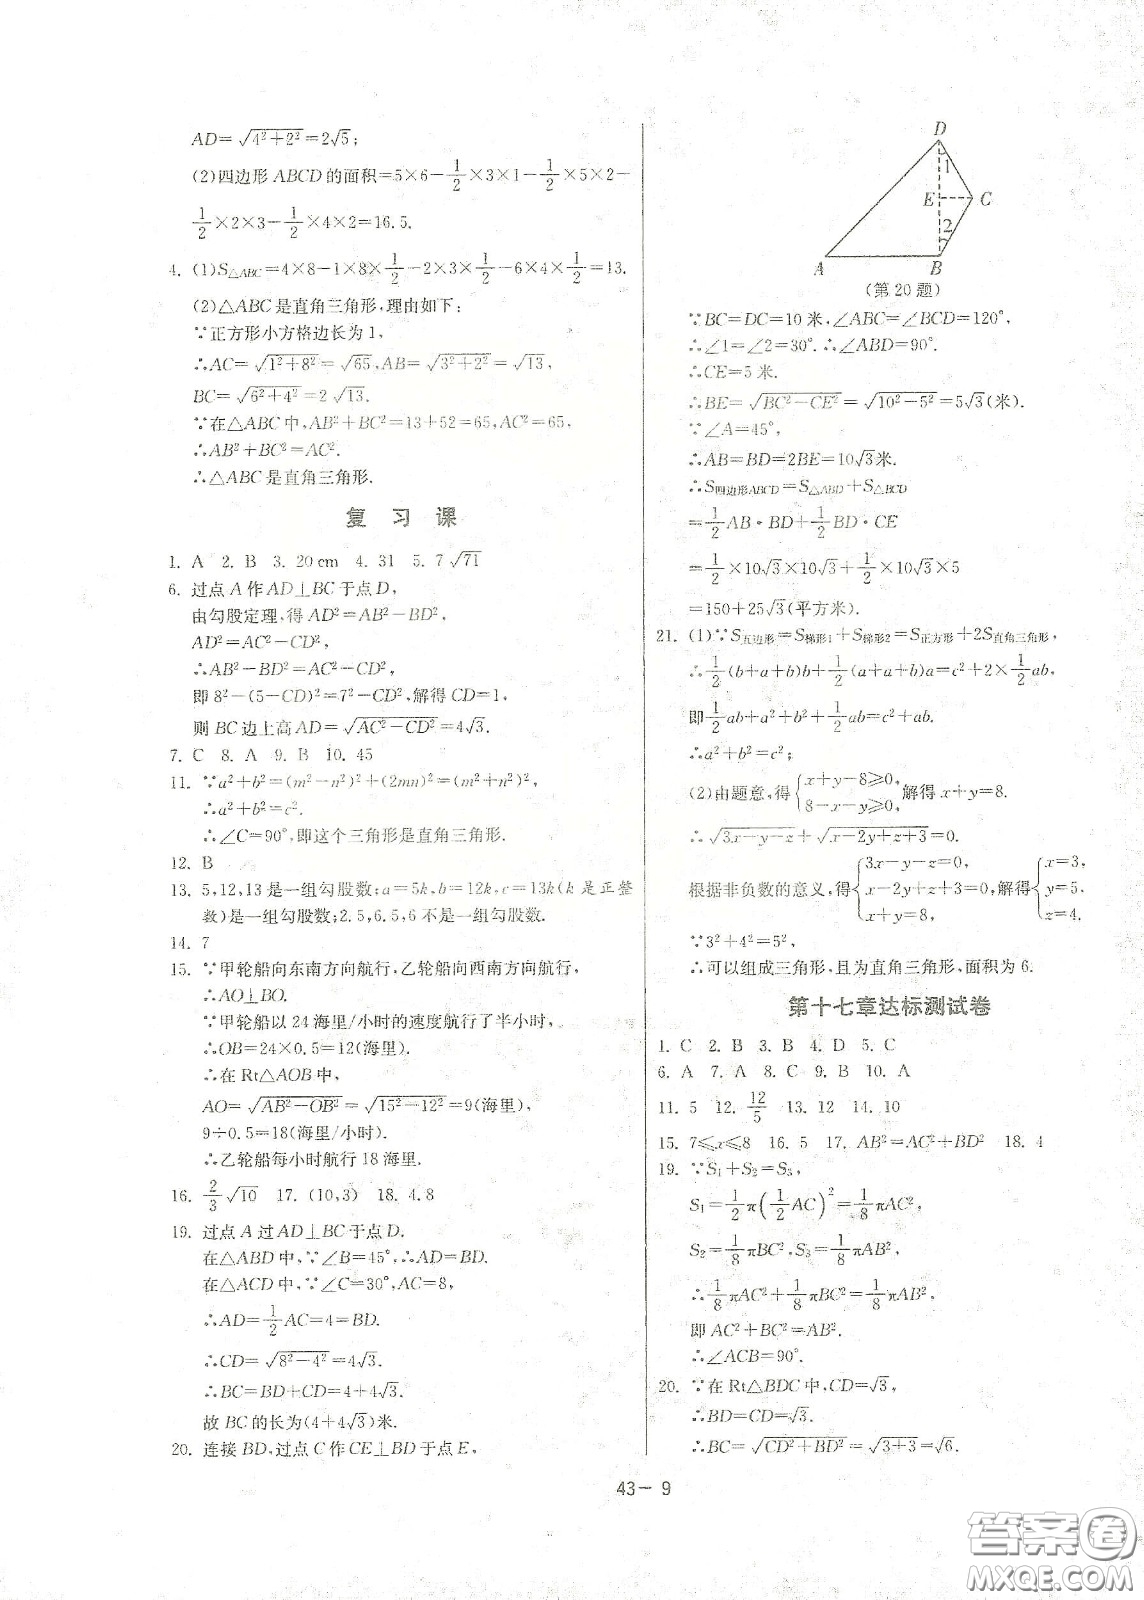 AD=√(4²+2²)=2√5;
(2)四边形 ABCD 的面积=5×6-1/2×3×1-1/2×5×2-
1/2×2×3-1/2×4×2=16.5.
4. (1)S△ABC=4×8-1×8×1/2-2×3×1/2-6×4×1/2=13.
(2)△ABC 是直角三角形,理由如下:
∵正方形小方格边长为 1,
∴AC=√(1²+8²)=√65,AB=√(3²+2²)=√13,
BC=√(6²+4²)=2√13.
∵在△ABC 中,AB²+BC²=13+52=65,AC²=65,
∴AB²+BC²=AC².
∴△ABC 是直角三角形.
复 习 课
1. A 2. B 3. 20 cm 4. 31 5. 7 √71
6. 过点 A 作 AD⊥BC 于点 D,
由勾股定理,得 AD²=AB²-BD²,
AD²=AC²-CD²,
∴AB²-BD²=AC²-CD²,
即 8²-(5-CD)²=7²-CD²,解得 CD=1,
则 BC 边上高 AD=√(AC²-CD²)=4√3.
7. C 8. A 9. B 10. 45
11. ∵a²+b²=(m²-n²)²+(2mn)²=(m²+n²)²,
∴a²+b²=c².
∴∠C=90°,即这个三角形是直角三角形.
12. B
13. 5,12,13 是一组勾股数;a=5k,b=12k,c=13k(k 是正整
数)是一组勾股数;2.5,6.5,6 不是一组勾股数.
14. 7
15. ∵甲轮船向东南方向航行,乙轮船向西南方向航行,
∴AO⊥BO.
∵甲轮船以 24 海里/小时的速度航行了半小时,
∴OB=24×0.5=12(海里).
∴在 Rt△AOB 中,
AO=√(AB²-OB²)=√(15²-12²)=9(海里),
9÷0.5=18(海里/小时).
∴乙轮船每小时航行 18 海里.
16. 2/3√10 17. (10,3) 18. 4.8
19. 过点 A 过 AD⊥BC 于点 D.
在△ABD 中,∵∠B=45°,∴AD=BD.
在△ACD 中,∵∠C=30°,AC=8,
∴AD=1/2AC=4=BD.
∴CD=√(8²-4²)=4√3.
∴BC=BD+CD=4+4√3.
故 BC 的长为(4+4√3)米.
20. 连接 BD,过点 C 作 CE⊥BD 于点 E,
D
1
E
C
2
A
B
(第 20 题)
∵BC=DC=10 米,∠ABC=∠BCD=120°,
∴∠1=∠2=30°.∴∠ABD=90°.
∴CE=5 米.
∴BE=√(BC²-CE²)=√(10²-5²)=5√3(米).
∵∠A=45°,
∴AB=BD=2BE=10√3米.
∴S四边形ABCD=S△ABD+S△BCD
=1/2AB·BD+1/2BD·CE
=1/2×10√3×10√3+1/2×10√3×5
=150+25√3(平方米).
21. (1)∵S五边形=S梯形1+S梯形2=S正方形+2S直角三角形,
∴1/2(b+a+b)b+1/2(a+a+b)a=c²+2×1/2ab,
即1/2ab+a²+b²+1/2ab=c²+ab.
∴a²+b²=c²;
(2)由题意,得{x+y-8≥0, 8-x-y≥0,解得 x+y=8.
∴√(3x-y-z)+√(x-2y+z+3)=0.
根据非负数的意义,得{3x-y-z=0, x-2y+z+3=0, x+y=8,解得{x=3, y=5, z=4.
∵3²+4²=5²,
∴可以组成三角形,且为直角三角形,面积为 6.
第十七章达标测试卷
1. C 2. B 3. B 4. D 5. C
6. A 7. A 8. C 9. B 10. A
11. 5 12. 12/5 13. 12 14. 10
15. 7≤x≤8 16. 5 17. AB²=AC²+BD² 18. 4
19. ∵S₁+S₂=S₃,
S₁=1/2π(1/2AC)²=1/8πAC²,
S₂=1/8πBC²,S₃=1/8πAB²,
∴1/8πAC²+1/8πBC²=1/8πAB²,
即 AC²+BC²=AB².
∴∠ACB=90°.
20. ∵在 Rt△BDC 中,CD=√3,
∴BD=CD=√3.
∴BC=√(CD²+BD²)=√(3+3)=√6.
43— 9
答案圈
MXQE.COM